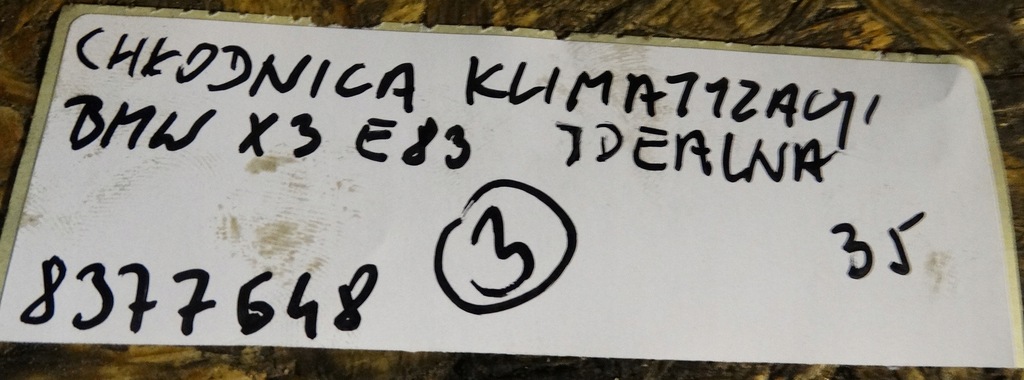 CHŁODNICA KLIMATYZACJI
BMW X3 E83 IDEALNA
3
35
8377648